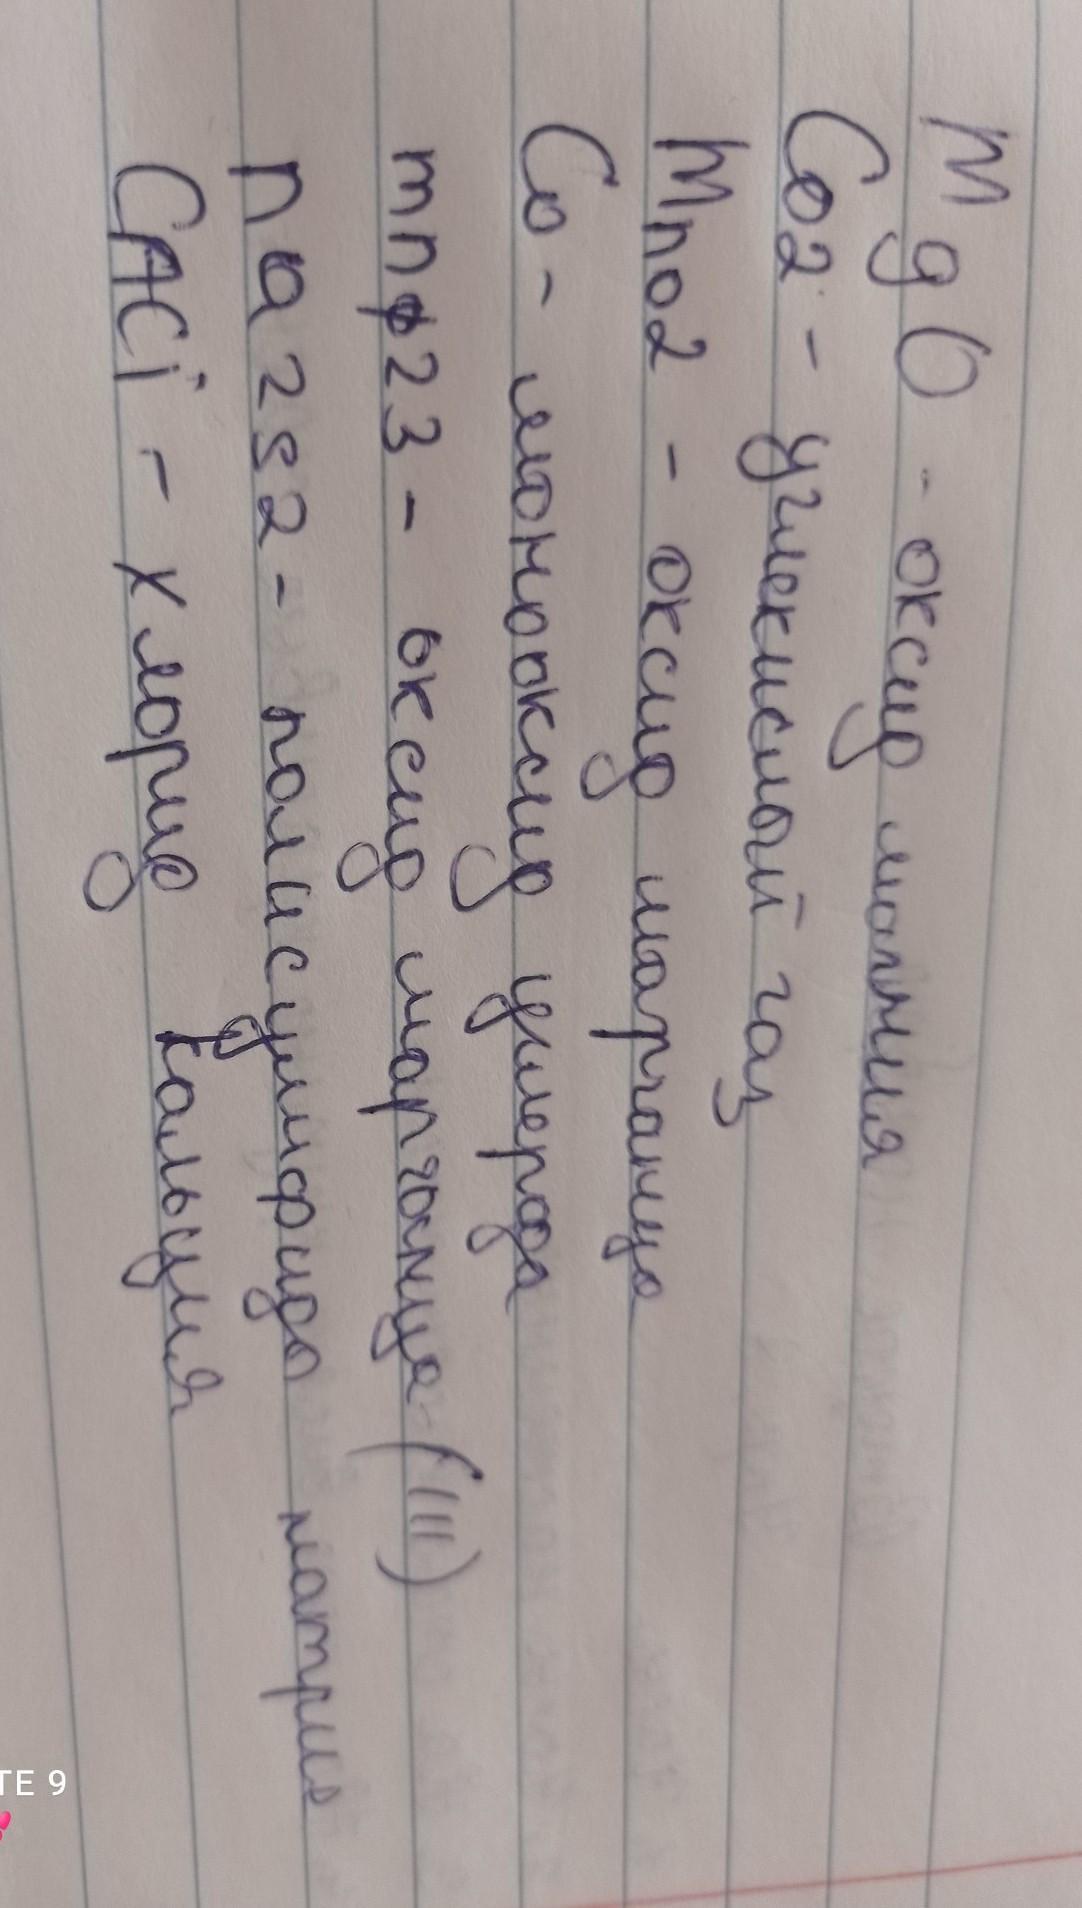 MgO - оксид магния
Co2 - углекислый газ
Mno2 - оксид марганца
Co - монооксид углерода
mno23 - оксид марганца (III)
na2s2 - полисулфиды натрия
CACi - хлорид кальция
TE 9